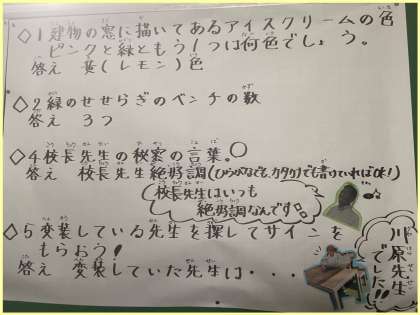 ◇1建物の窓に描いてあるアイスクリームの色
ピンクと緑ともう1つは何色でしょう。
答え 黄(レモン)色
◇2緑のせせらぎのベンチの数
答え 3つ
◇4校長先生の秘密の言葉。
答え 校長先生絶好調(ひらがなでも、カタカナでも書けていればOK!)
校長先生はいつも
絶好調なんです。
◇5変装している先生を探してサインを
もらおう!
答え 変装していた先生は・・・
川原先生
でした!!